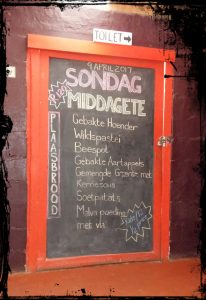 TOILET
9 APRIL 2017
SONDAG
MIDDAGETE
PLAASBROOD
Gebakte Hoender
Wildspastei
Beespot
Gebakte Aartappels
Gemengde Groente met
Kerriesous
Soetpatats
Malva poeding
met vla